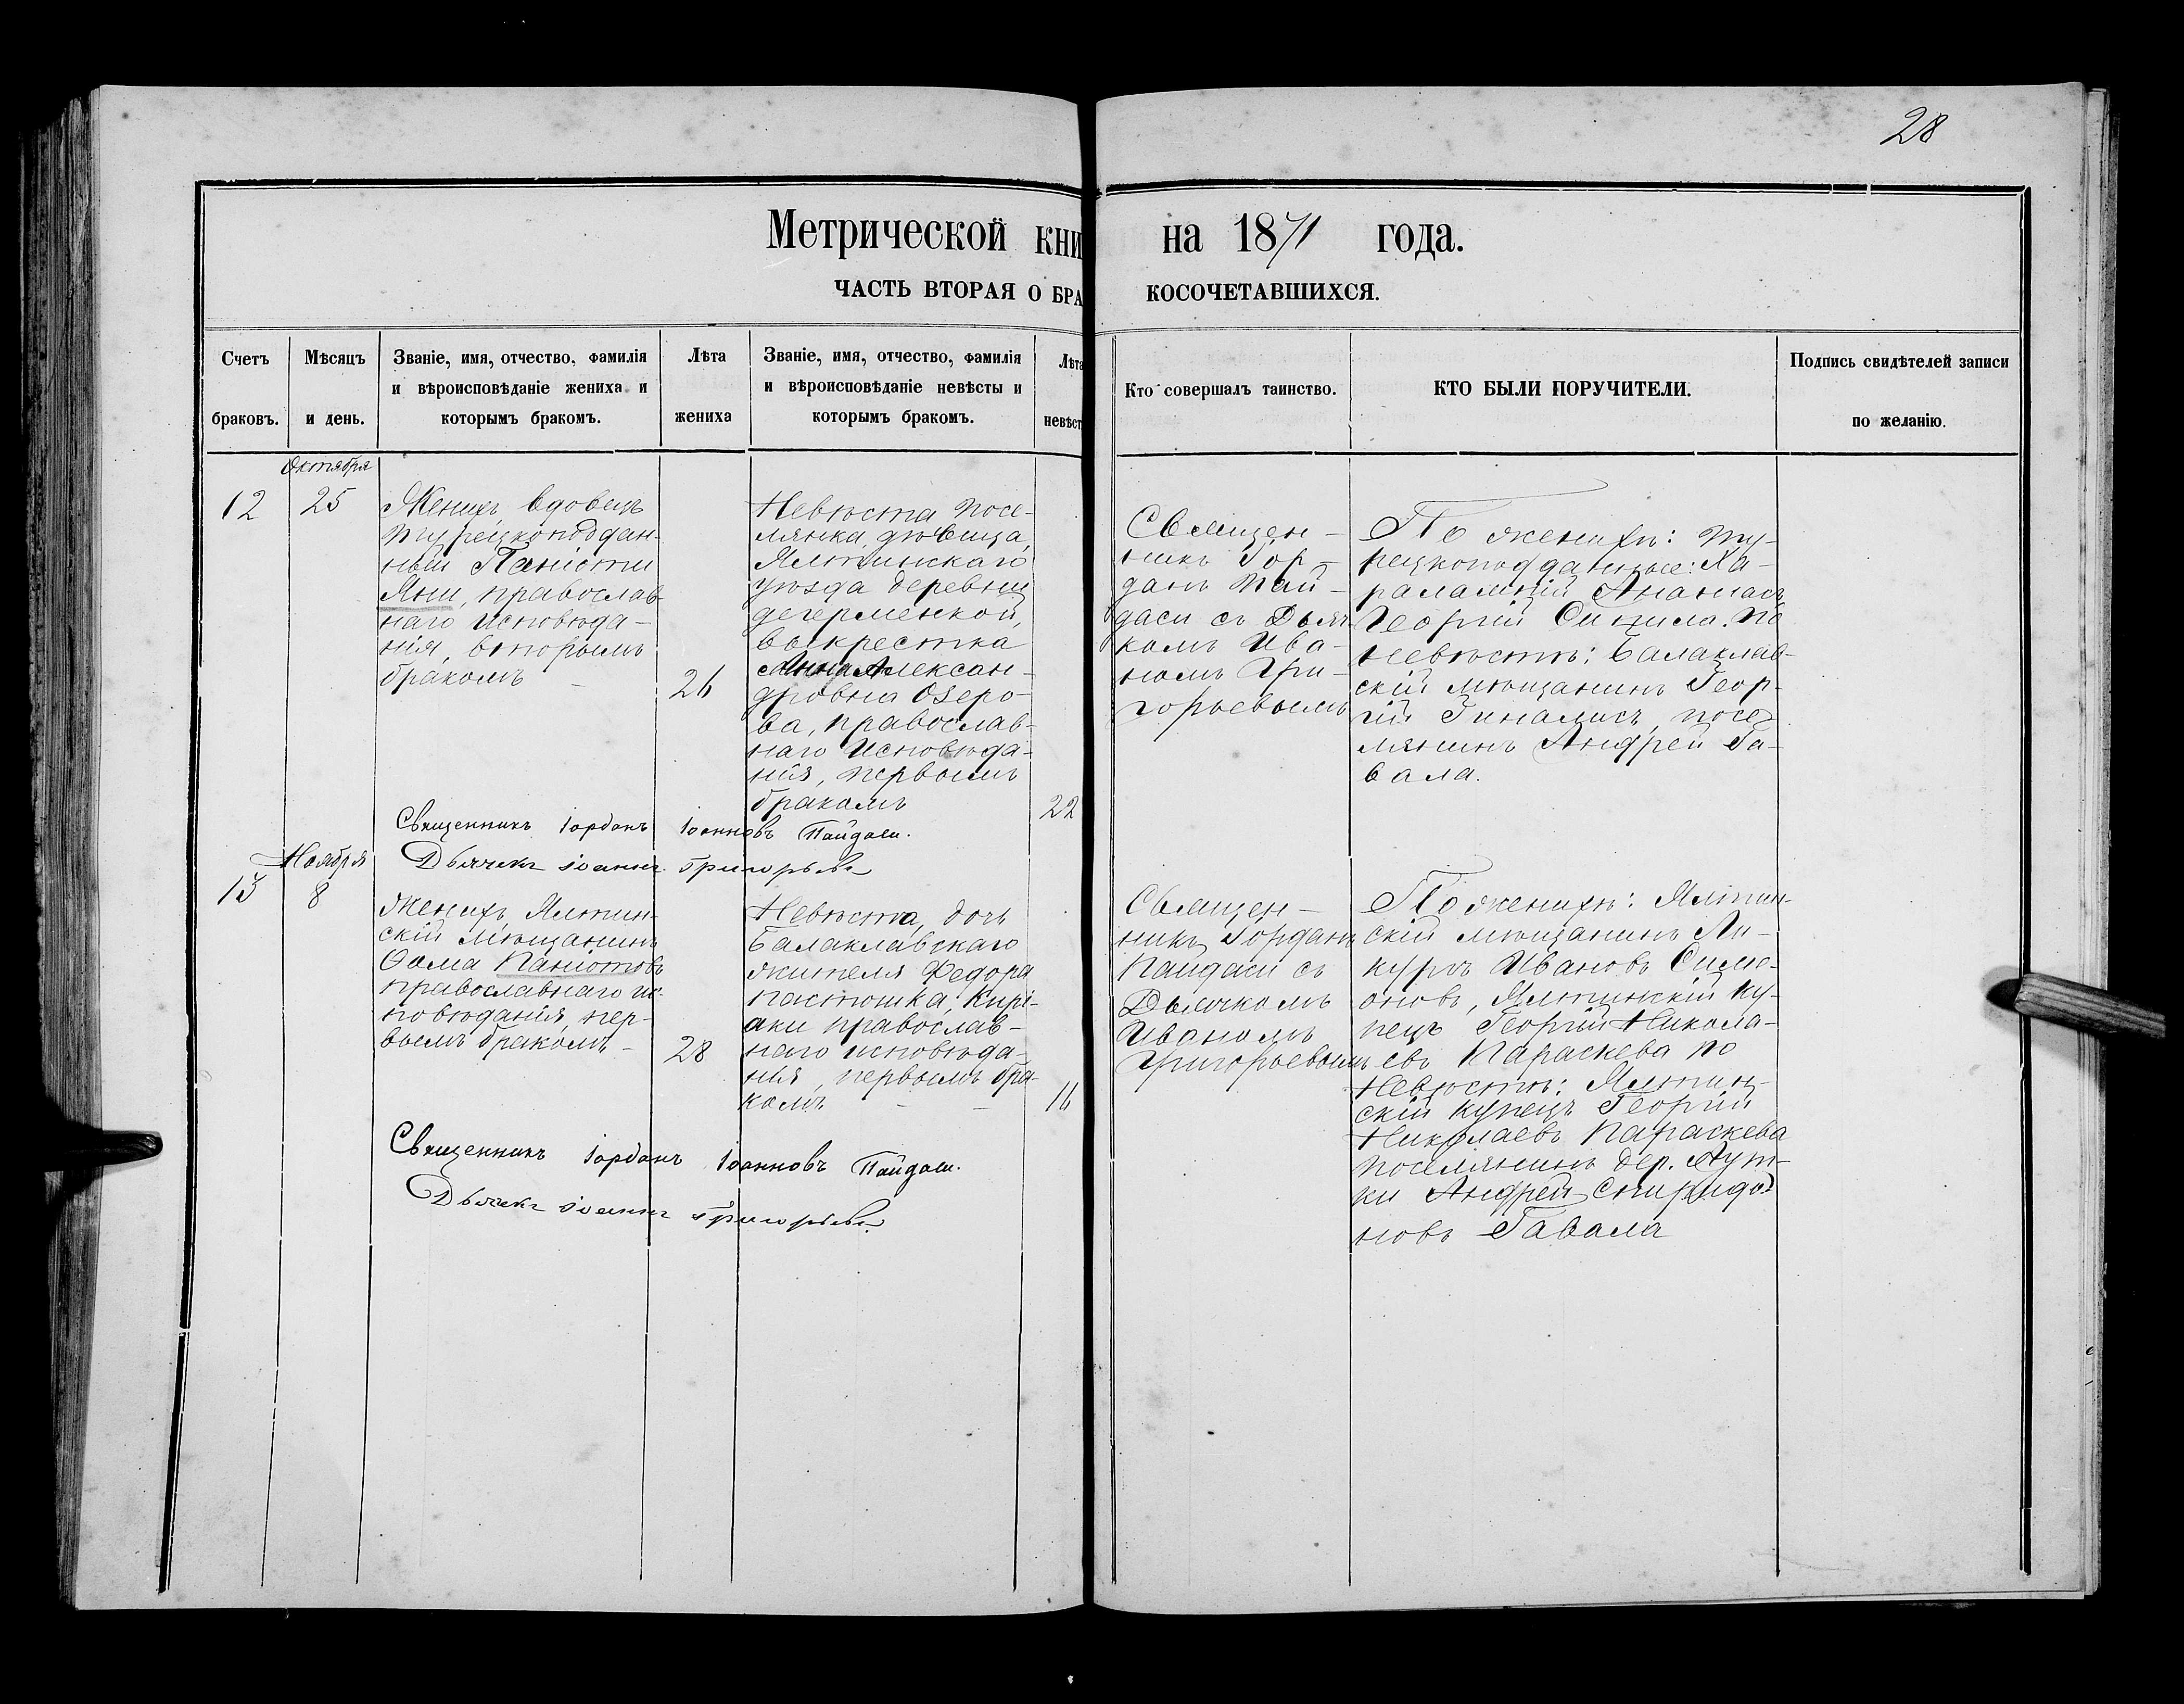 28
Метрической кни на 1871 года.
ЧАСТЬ ВТОРАЯ О БРА КОСОЧЕТАВШИХСЯ.
Счетъ браковъ.
Мѣсяцъ и день.
Званіе, имя, отчество, фамилія
и вѣроисповѣданіе жениха и
которымъ бракомъ.
Лѣта
жениха
Званіе, имя, отчество, фамилія
и вѣроисповѣданіе невѣсты и
которымъ бракомъ.
Лѣта
невѣст
Кто совершалъ таинство.
КТО БЫЛИ ПОРУЧИТЕЛИ.
Подпись свидѣтелей записи
по желанію.
Октября
12
25
Женихъ вдовецъ
турецкоподдан-
ный Паніоти
Яни, православ-
наго исповѣда-
нія, вторымъ
бракомъ –
26
Невѣста посе-
лянка, дѣвица,
Ялтинскаго
уѣзда деревни
дегерменкой,
выкрестка
Анна Алексан-
дровна Озеро-
ва, православ-
наго исповѣда-
нія, первымъ
бракомъ
22
Священ-
никъ Іор-
данъ Пай-
даси съ Дьяч-
комъ Ива-
номъ Гри-
горьевымъ
По женихѣ: ту-
рецкоподданные: Ха-
ралампій Ананасъ
Георгій Синила. по
невѣстѣ: Балаклав-
скій мѣщанинъ Геор-
гій Гиналисъ, посе-
лянинъ Андрей Га-
вала.
Священникъ Іорданъ Іоанновъ Пайдаси.
Дьячекъ Іоаннъ Григорьевъ
Ноября
13
8
Женихъ, Ялтин-
скій мѣщанинъ
Ѳома Паніотовъ
православнаго ис-
повѣданія, пер-
вымъ бракомъ –
28
Невѣста, дочь
Балаклавскаго
жителя Федора
Кирі-
аки православ-
наго исповѣда-
нія, первымъ бра-
комъ – –
16
Священ-
никъ Іорданъ
Пайдаси съ
Дьячкомъ
Иваномъ
Григорьевымъ
По женихѣ: Ялтин-
скій мѣщанинъ Ли-
кургъ Ивановъ Симе-
оновъ, Ялтинскій ку-
пецъ Георгій Никола-
евъ Параскева по
Невѣстѣ: Ялтин-
скій купецъ Георгій
Николаевъ Параскева
поселянинъ дер. Аут-
ки Андрей Спиридо-
новъ Гавала
Священникъ Іорданъ Іоанновъ Пайдаси.
Дьячекъ Іоаннъ Григорьевъ